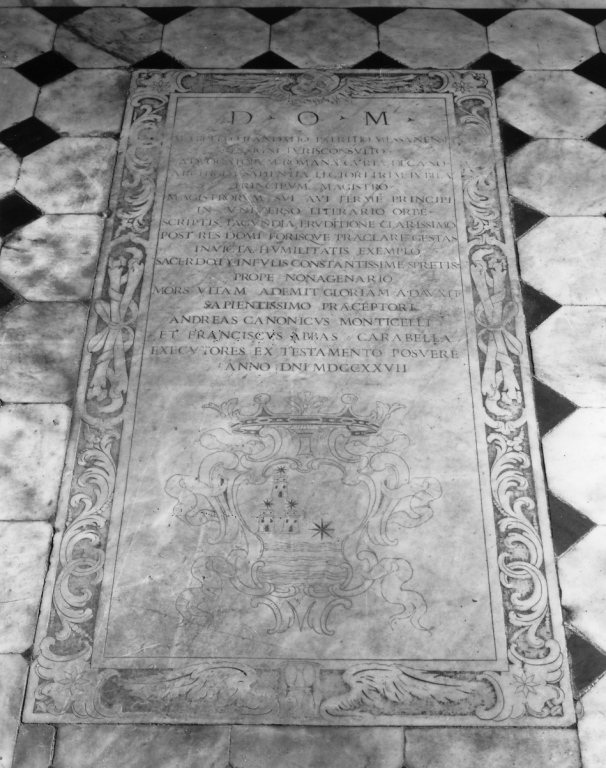 D · O · M ·
IVRISCONSVLTO
ROMANÆ CVRIÆ DECANO
LECTORI
PRINCIPVM MAGISTRO
MAGISTRORVM SVI ÆVI FERME PRINCIPI
IN VNIVERSO LITERARIO ORBE
SCRIPTIS FACVNDIA ERVDITIONE CLARISSIMO
POST RES DOMI FORISQVE PRÆCLARE GESTAS
INVICTÆ HVMILITATIS EXEMPLO
SACERDOTII INFVLIS CONSTANTISSIME SPRETIS
PROPE NONAGENARIO
MORS VITAM ADEMIT GLORIAM ADAVXIT
SAPIENTISSIMO PRÆCEPTORI
ANDREAS CANONICVS MONTICELLI
ET FRANCISCVS ABBAS CARABELLA
EXECVTORES EX TESTAMENTO POSVERE
ANNO DNI MDCCXXVII